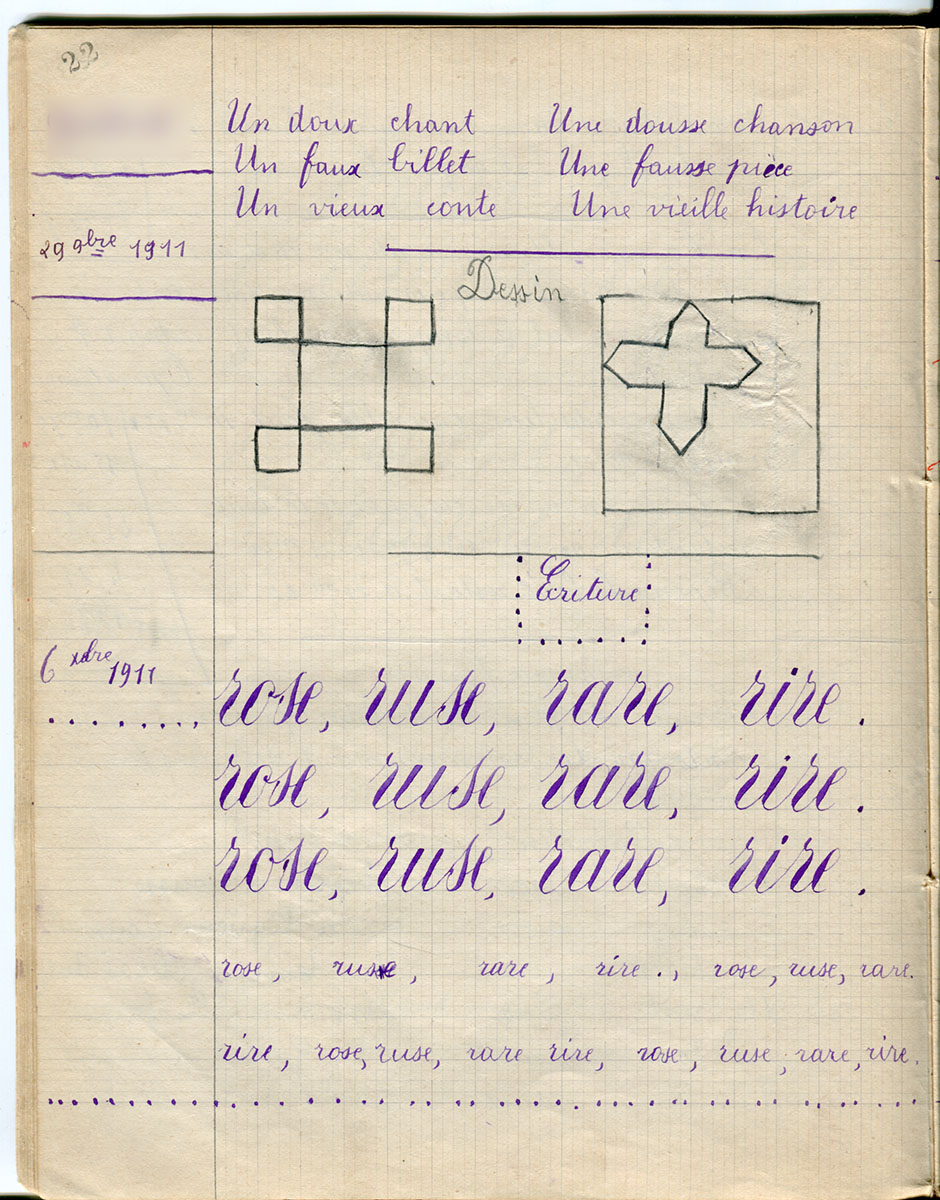 22
Un doux chant Une dousse chanson
Un faux billet Une fausse pièce
Un vieux conte Une vieille histoire
29 9bre 1911
Dessin
Ecriture
6 xbre 1911
rose, ruse, rare, rire.
rose, ruse, rare, rire.
rose, ruse, rare, rire.
rose, ruse, rare, rire., rose, ruse, rare.
rire, rose, ruse, rare rire, rose, ruse, rare, rire.